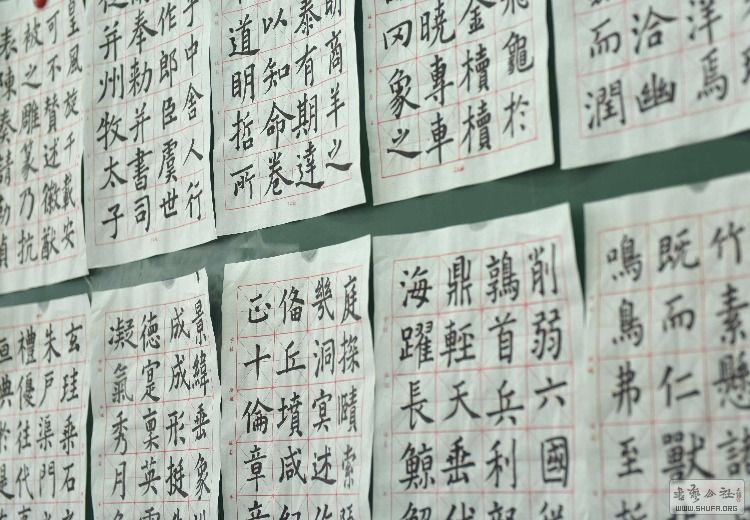 皇風旋千載安
可不贊述徽猷
被之雕篆乃抗
表陳奏請勒貞
子中舍人行
作郎臣虞世
南奉勅并書司
并州牧太子
明商羊之
泰有期達
以知命卷
道明哲所
飛龜於
金櫝櫝
曉專車
罔象之
洋焉
洽幽
而潤
玄珪乘石
朱戶渠門
禮優往代
典於是
景緯垂象
成成形挺
德寔稟英
凝氣秀月
庭探賾索
幾洞冥述
俻丘墳咸
正十倫章
削弱六國
鶉首兵利
鼎輕天垂
海躍長鯨
竹素懸
既而仁獸
鳴鳥弗至
WWW.SHUFA.ORG